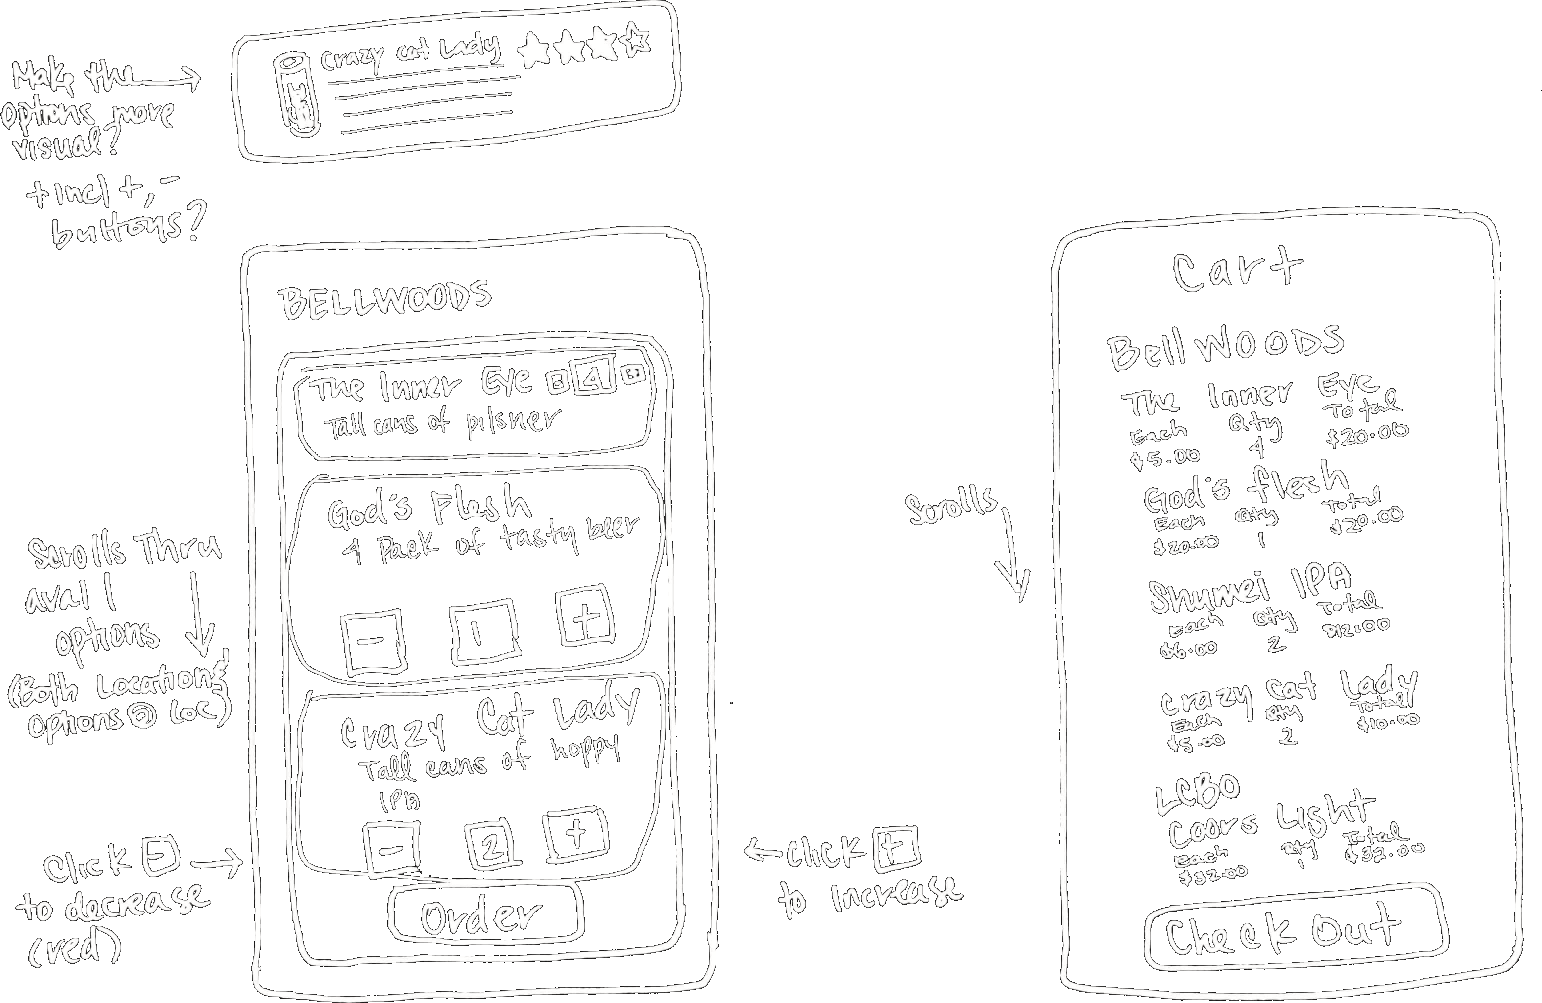 Make the
options more
visual?
+ incl +, -
buttons?
Crazy cat Lady
BELLWOODS
The Inner Eye 4
Tall cans of pilsner
God's Flesh
4 Pack of tasty beer
- 1 +
Crazy Cat Lady
Tall cans of hoppy
IPA
- 2 +
Order
Scrolls Thru
avail
options
(Both Locations
options @ Loc)
Click -
to decrease
(red)
Click +
to increase
Scrolls
Cart
Bell WOODS
The Inner Eye
Each Qty Total
$5.00 4 $20.00
God's flesh
Each Qty Total
$20.00 1 $20.00
Shumei IPA
Each Qty Total
$6.00 2 $12.00
Crazy Cat Lady
Each Qty Total
$5.00 2 $10.00
LCBO
Coors Light
Each Qty Total
$32.00 1 $32.00
Check Out